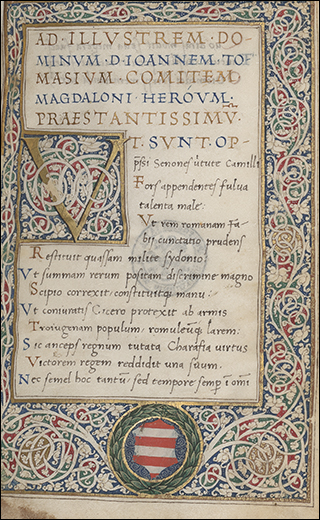 AD · ILLVSTREM · DO-
MINVM · D · IOANNEM · TO
MASIVM · COMITEM
MAGDALONI · HEROVM ·
PRAESTANTISSIMV ·
VT · SVNT · OP-
pssi Senones uirtute Camilli
Fors appendentes fulua
talenta male:
Vt rem romanam Fa-
bij cunctatio prudens
Restituit quassam milite sydonio:
Vt summam rerum positam discrimine magno
Scipio correxit: constituitq; manu:
Vt coniuratis Cicero protexit ab armis
Troiugenam populum: romuleūq; larem:
Sic anceps regnum tutata Charafia uirtus
Victorem regem reddidit una suum.
Nec semel hoc tantū: sed tempore semp̄ ī omī